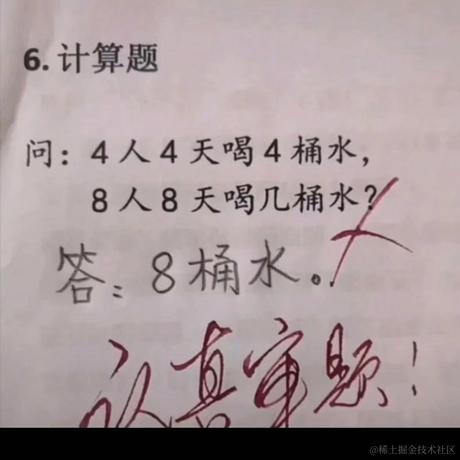 6. 计算题
问：4人4天喝4桶水，
8人8天喝几桶水？
答：8桶水。
认真审题！
@稀土掘金技术社区